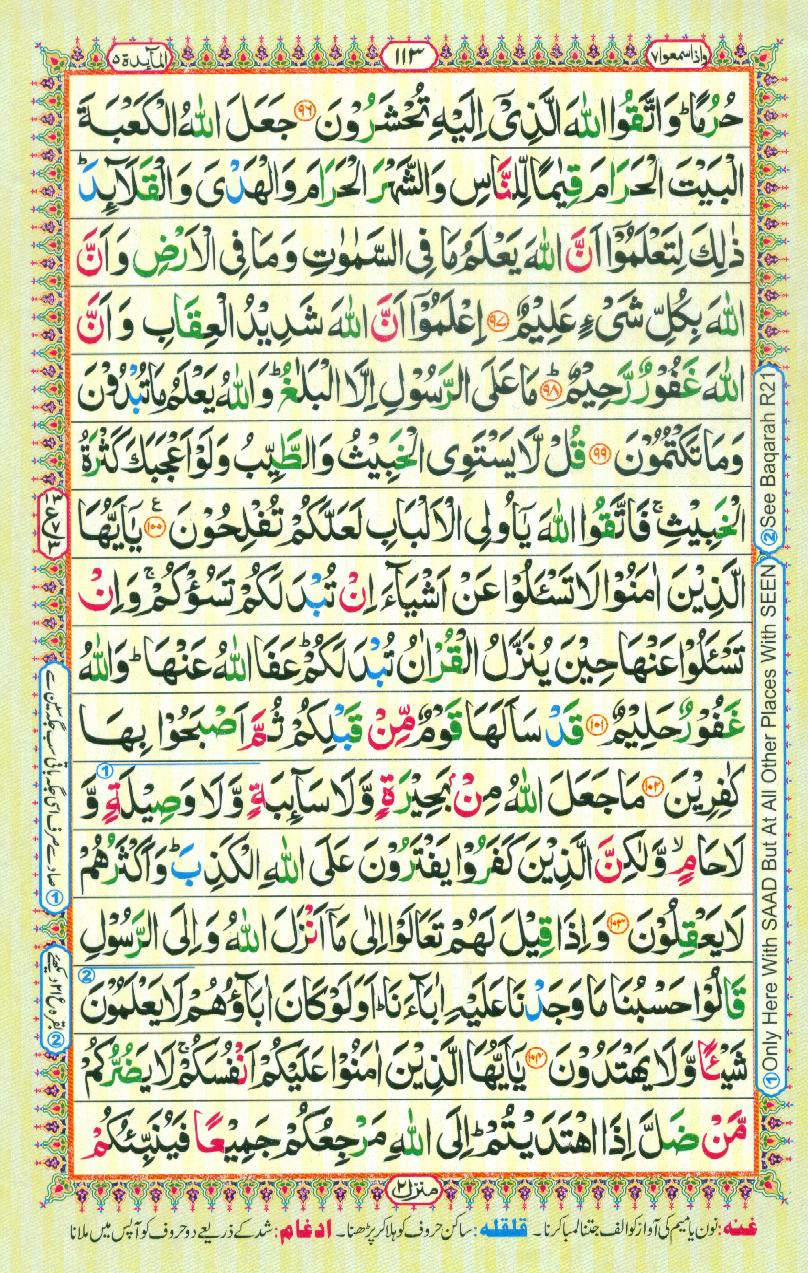 واذا سمعوا ٧
١١٣
المآئدة ٥
حُرُمًا ؕ وَاتَّقُوا اللّٰهَ الَّذِیْۤ اِلَیْهِ تُحْشَرُوْنَ ﴿۹۶﴾ جَعَلَ اللّٰهُ الْكَعْبَةَ
الْبَیْتَ الْحَرَامَ قِیٰمًا لِّلنَّاسِ وَالشَّهْرَ الْحَرَامَ وَالْهَدْیَ وَالْقَلَآىِٕدَ ؕ
ذٰلِكَ لِتَعْلَمُوْۤا اَنَّ اللّٰهَ یَعْلَمُ مَا فِی السَّمٰوٰتِ وَمَا فِی الْاَرْضِ وَاَنَّ
اللّٰهَ بِكُلِّ شَیْءٍ عَلِیْمٌ ﴿۹۷﴾ اِعْلَمُوْۤا اَنَّ اللّٰهَ شَدِیْدُ الْعِقَابِ وَاَنَّ
اللّٰهَ غَفُوْرٌ رَّحِیْمٌ ؕ ﴿۹۸﴾ مَا عَلَی الرَّسُوْلِ اِلَّا الْبَلٰغُ ؕ وَاللّٰهُ یَعْلَمُ مَا تُبْدُوْنَ
وَمَا تَكْتُمُوْنَ ﴿۹۹﴾ قُلْ لَّا یَسْتَوِی الْخَبِیْثُ وَالطَّیِّبُ وَلَوْ اَعْجَبَكَ كَثْرَةُ
الْخَبِیْثِ ۚ فَاتَّقُوا اللّٰهَ یٰۤاُولِی الْاَلْبَابِ لَعَلَّكُمْ تُفْلِحُوْنَ ﴿۱۰۰﴾ ع یٰۤاَیُّهَا
الَّذِیْنَ اٰمَنُوْا لَا تَسْـَٔلُوْا عَنْ اَشْیَآءَ اِنْ تُبْدَ لَكُمْ تَسُؤْكُمْ ۚ وَاِنْ
تَسْـَٔلُوْا عَنْهَا حِیْنَ یُنَزَّلُ الْقُرْاٰنُ تُبْدَ لَكُمْ ؕ عَفَا اللّٰهُ عَنْهَا ؕ وَاللّٰهُ
غَفُوْرٌ حَلِیْمٌ ﴿۱۰۱﴾ قَدْ سَاَلَهَا قَوْمٌ مِّنْ قَبْلِكُمْ ثُمَّ اَصْبَحُوْا بِهَا
كٰفِرِیْنَ ﴿۱۰۲﴾ مَا جَعَلَ اللّٰهُ مِنْۢ بَحِیْرَةٍ وَّلَا سَآىِٕبَةٍ وَّلَا وَصِیْلَةٍ وَّ
لَا حَامٍ ۙ وَّلٰكِنَّ الَّذِیْنَ كَفَرُوْا یَفْتَرُوْنَ عَلَی اللّٰهِ الْكَذِبَ ؕ وَاَكْثَرُهُمْ
لَا یَعْقِلُوْنَ ﴿۱۰۳﴾ وَاِذَا قِیْلَ لَهُمْ تَعَالَوْا اِلٰی مَاۤ اَنْزَلَ اللّٰهُ وَاِلَی الرَّسُوْلِ
قَالُوْا حَسْبُنَا مَا وَجَدْنَا عَلَیْهِ اٰبَآءَنَا ؕ اَوَلَوْ كَانَ اٰبَآؤُهُمْ لَا یَعْلَمُوْنَ
شَیْـًٔا وَّلَا یَهْتَدُوْنَ ﴿۱۰۴﴾ یٰۤاَیُّهَا الَّذِیْنَ اٰمَنُوْا عَلَیْكُمْ اَنْفُسَكُمْ ۚ لَا یَضُرُّكُمْ
مَّنْ ضَلَّ اِذَا اهْتَدَیْتُمْ ؕ اِلَی اللّٰهِ مَرْجِعُكُمْ جَمِیْعًا فَیُنَبِّئُكُمْ
② See Baqarah R21
① Only Here With SAAD But At All Other Places With SEEN
① صاد سے صرف اسی جگہ باقی سب جگہ سین سے
منزل ٢
غنه: نون یا میم کی آواز کو الف جتنا لمبا کرنا۔ قلقله: ساکن حروف کو ہلا کر پڑھنا۔ ادغام: شد کے ذریعے دو حروف کو آپس میں ملانا